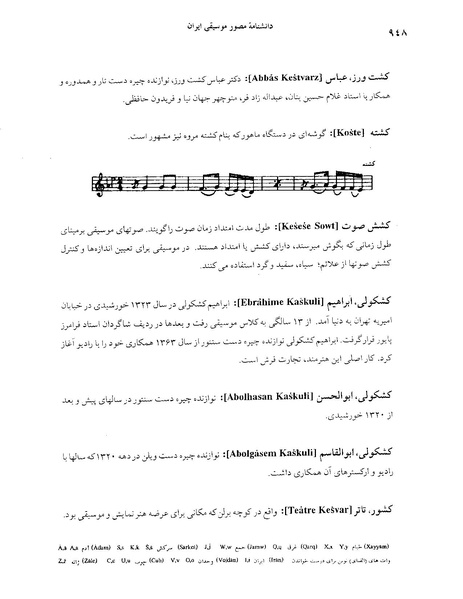 دانشنامهٔ مصور موسیقی ایران
۹٤۸
کشت ورز، عباس [Abbás Keśtvarz]: دکتر عباس کشت ورز، نوازنده چیره دست تار و همدوره و
همکار با استاد غلام حسین بنان، عبداله زاد فر، منوچهر جهان نیا و فریدون حافظی.
کشته [Kośte]: گوشه‌ای در دستگاه ماهور که بنام کشته مروه نیز مشهور است.
کشته
کشش صوت [Keśeśe Sowt]: طول مدت امتداد زمان صوت را گویند. صوتهای موسیقی برمبنای
طول زمانی که بگوش میرسند، دارای کشش یا امتداد هستند. در موسیقی برای تعیین اندازه‌ها و کنترل
کشش صوتها از علائم؛ سیاه، سفید و گرد استفاده می کنند.
کشکولی، ابراهیم [Ebráhime Kaśkuli]: ابراهیم کشکولی در سال ۱۳۲۳ خورشیدی در خیابان
امیریه تهران به دنیا آمد. از ۱۳ سالگی به کلاس موسیقی رفت و بعدها در ردیف شاگردان استاد فرامرز
پایور قرار گرفت. ابراهیم کشکولی نوازنده چیره دست سنتور از سال ۱۳۶۳ همکاری خود را با رادیو آغاز
کرد. کار اصلی این هنرمند، تجارت فرش است.
کشکولی، ابوالحسن [Abolhasan Kaśkuli]: نوازنده چیره دست سنتور در سالهای پیش و بعد
از ۱۳۲۰ خورشیدی.
کشکولی، ابوالقاسم [Abolgásem Kaśkuli]: نوازنده چیره دست ویلن در دهه ۱۳۲۰ که سالها با
رادیو و ارکسترهای آن همکاری داشت.
کشور، تاتر [Teátre Keśvar]: واقع در کوچه برلن که مکانی برای عرضه هنر نمایش و موسیقی بود.
A,a A,a آدم (Ádam) S,s K,k Ś,ś سرکش (Sarkeś) J,j W,w جمع (Jamw) Q,q غرق (Qarq) X,x Y,y خیام (Xayyám)
Z,z ژاله (Źále) C,c U,u چوب (Cub) V,v O,o وجدان (Vojdán) I,i ایران (Irán) وات های (الفبای) نوین برای درست خواندن